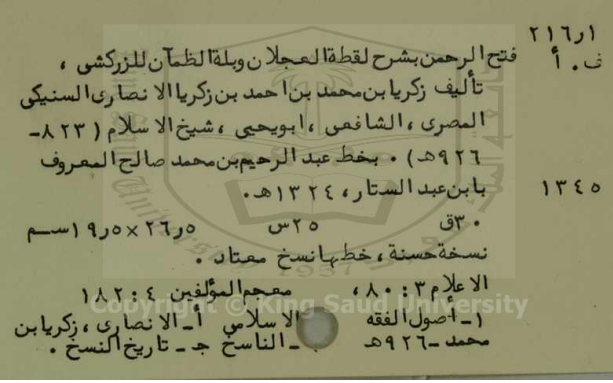 ٢١٦ر١
ف٠أ فتح الرحمن بشرح لقطة العجلان وبلة الظمآن للزركشى ،
تأليف زكريا بن محمد بن احمد بن زكريا الانصارى السنيكى
المصرى ، الشافعى ، ابويحيى ، شيخ الاسلام ( ٨٢٣ -
٩٢٦هـ) ٠ بخط عبد الرحيم بن محمد صالح المعروف
١٣٤٥ بابن عبد الستار ، ١٣٢٤هـ٠
٣٠ق ٢٥س ٢٦٫٥×١٩٫٥سم
نسخة حسنة ، خطها نسخ معتاد ٠
الاعلام ٣ : ٨٠ ، معجم المؤلفين ٤ : ١٨٢
Copyright © King Saud University
١ - أصول الفقه الاسلامي أ - الانصارى ، زكريا بن
محمد - ٩٢٦هـ - الناسخ جـ - تاريخ النسخ ٠
1957